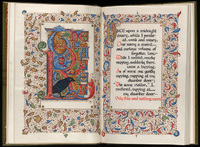 NCE upon a midnight
dreary, while I ponder-
ed, weak and weary,
Over many a quaint
and curious volume of
forgotten lore,
While I nodded, nearly
napping, suddenly there
came a tapping,
As of some one gently
rapping, rapping at my
chamber door.
"'Tis some visitor," I
muttered, "tapping at
my chamber door;
Only this and nothing more."